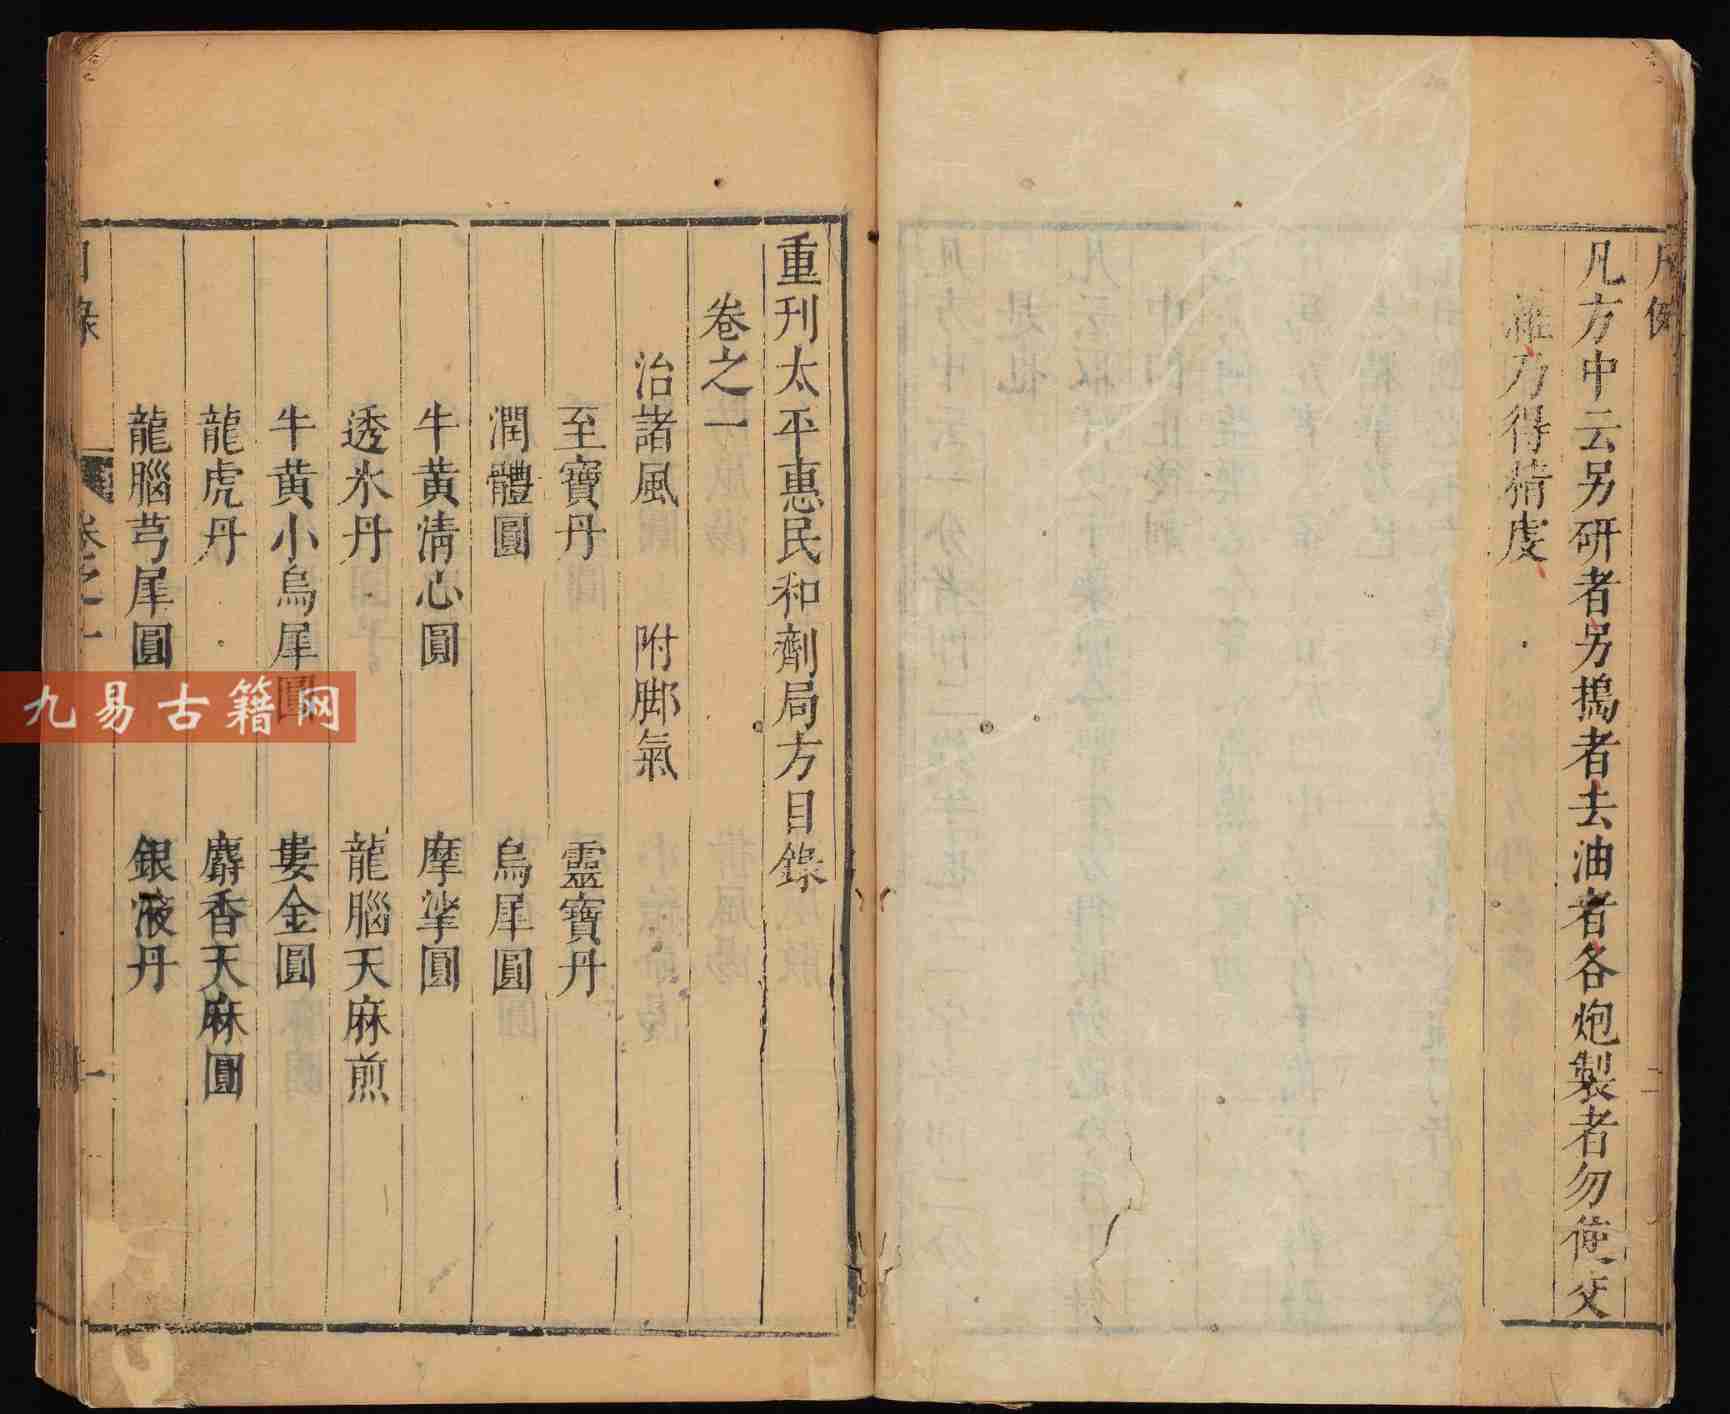 凡例
二
凡方中云另研者另搗者去油者各炮製者勿使交
雜乃得精虔
重刊太平惠民和劑局方目錄
卷之一
治諸風 附脚氣
至寶丹 靈寶丹
潤體圓 烏犀圓
牛黄清心圓 摩挲圓
透氷丹 龍腦天麻煎
牛黄小烏犀圓 婁金圓
龍虎丹 麝香天麻圓
龍腦芎犀圓 銀液丹
目錄 卷之一 一
九易古籍网